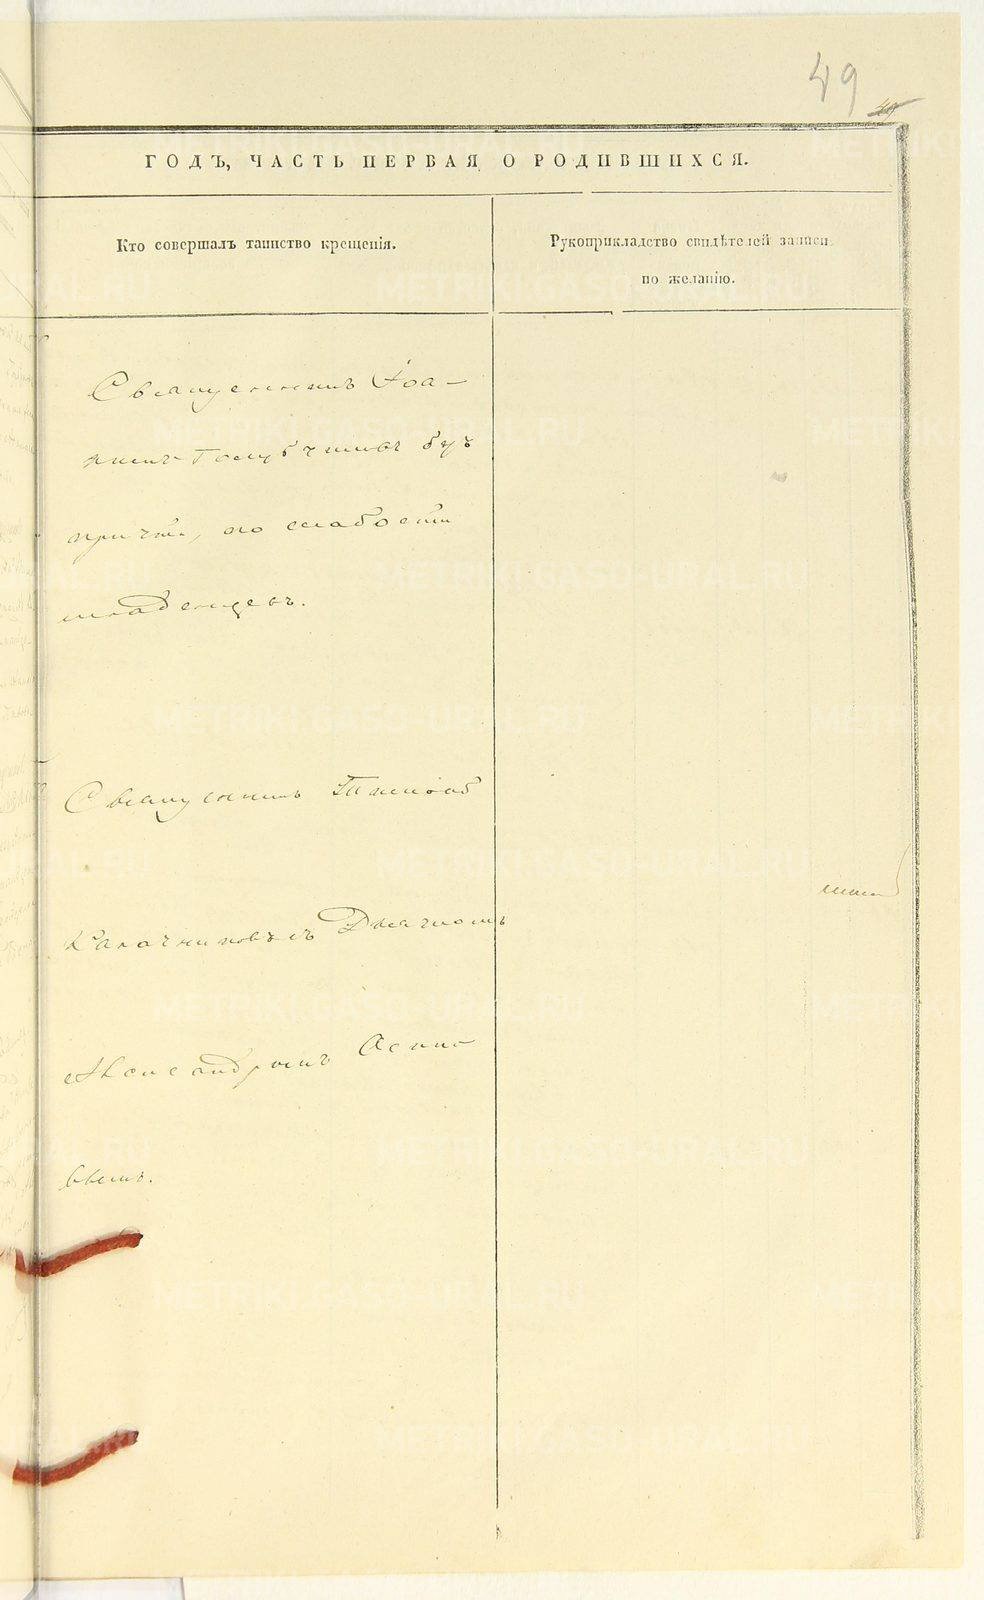 49
ГОДЪ, ЧАСТЬ ПЕРВАЯ О РОДИВШИХСЯ.
Кто совершалъ таинство крещенія.
Рукоприкладство свидѣтелей записи
по желанію.
Священникъ Іоа-
ннъ Голубчиковъ безъ
причта, по слабости
младенцевъ.
Священникъ
Калачниковъ съ Дьячкомъ
Александромъ
METRIKI.GASO-URAL.RU